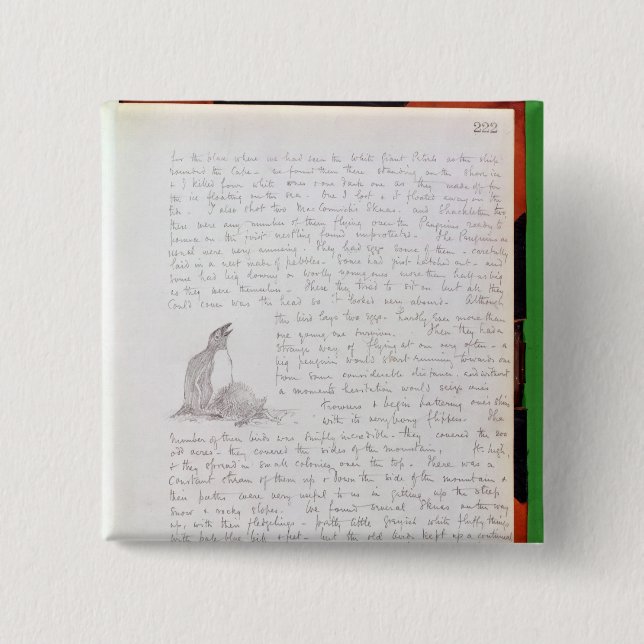 222
for the place where we had seen the White Giant Petrels as the ship
rounded the Cape - we found them there standing on the shore ice
& I killed four white ones & one dark one as they made off for
the ice floating on the sea. One I lost & it floated away on the
I also shot two MacCormick's Skuas. and Shackleton two
there were any number of them flying over the Penguins ready to
pounce on the first nestling found unprotected. The Penguins as
usual were very amusing. They had eggs some of them - carefully
laid in a nest made of pebbles - Some had just hatched out - and
some had big downy or woolly young ones more than half as big
as they were themselves - These they tried to sit on but all they
could cover was the head so it looked very absurd. Although
this bird lays two eggs - hardly ever more than
one young one survives. Then they had a
strange way of flying at one very often - a
big penguin would start running towards one
from some considerable distance, and without
a moments hesitation would seize ones
trousers & begin battering ones shins
with its very bony flippers. The
number of these birds was simply incredible - they covered the 200
odd acres - they covered the sides of the mountain, ft. high,
& they spread in small colonies over the top. There was a
constant stream of them up & down the side of the mountain &
their paths were very useful to us in getting up the steep
snow & rocky slopes. We found several Skuas on the way
up, with their fledgelings - pretty little grayish white fluffy things
with pale blue bill & feet - but the old birds kept up a continual